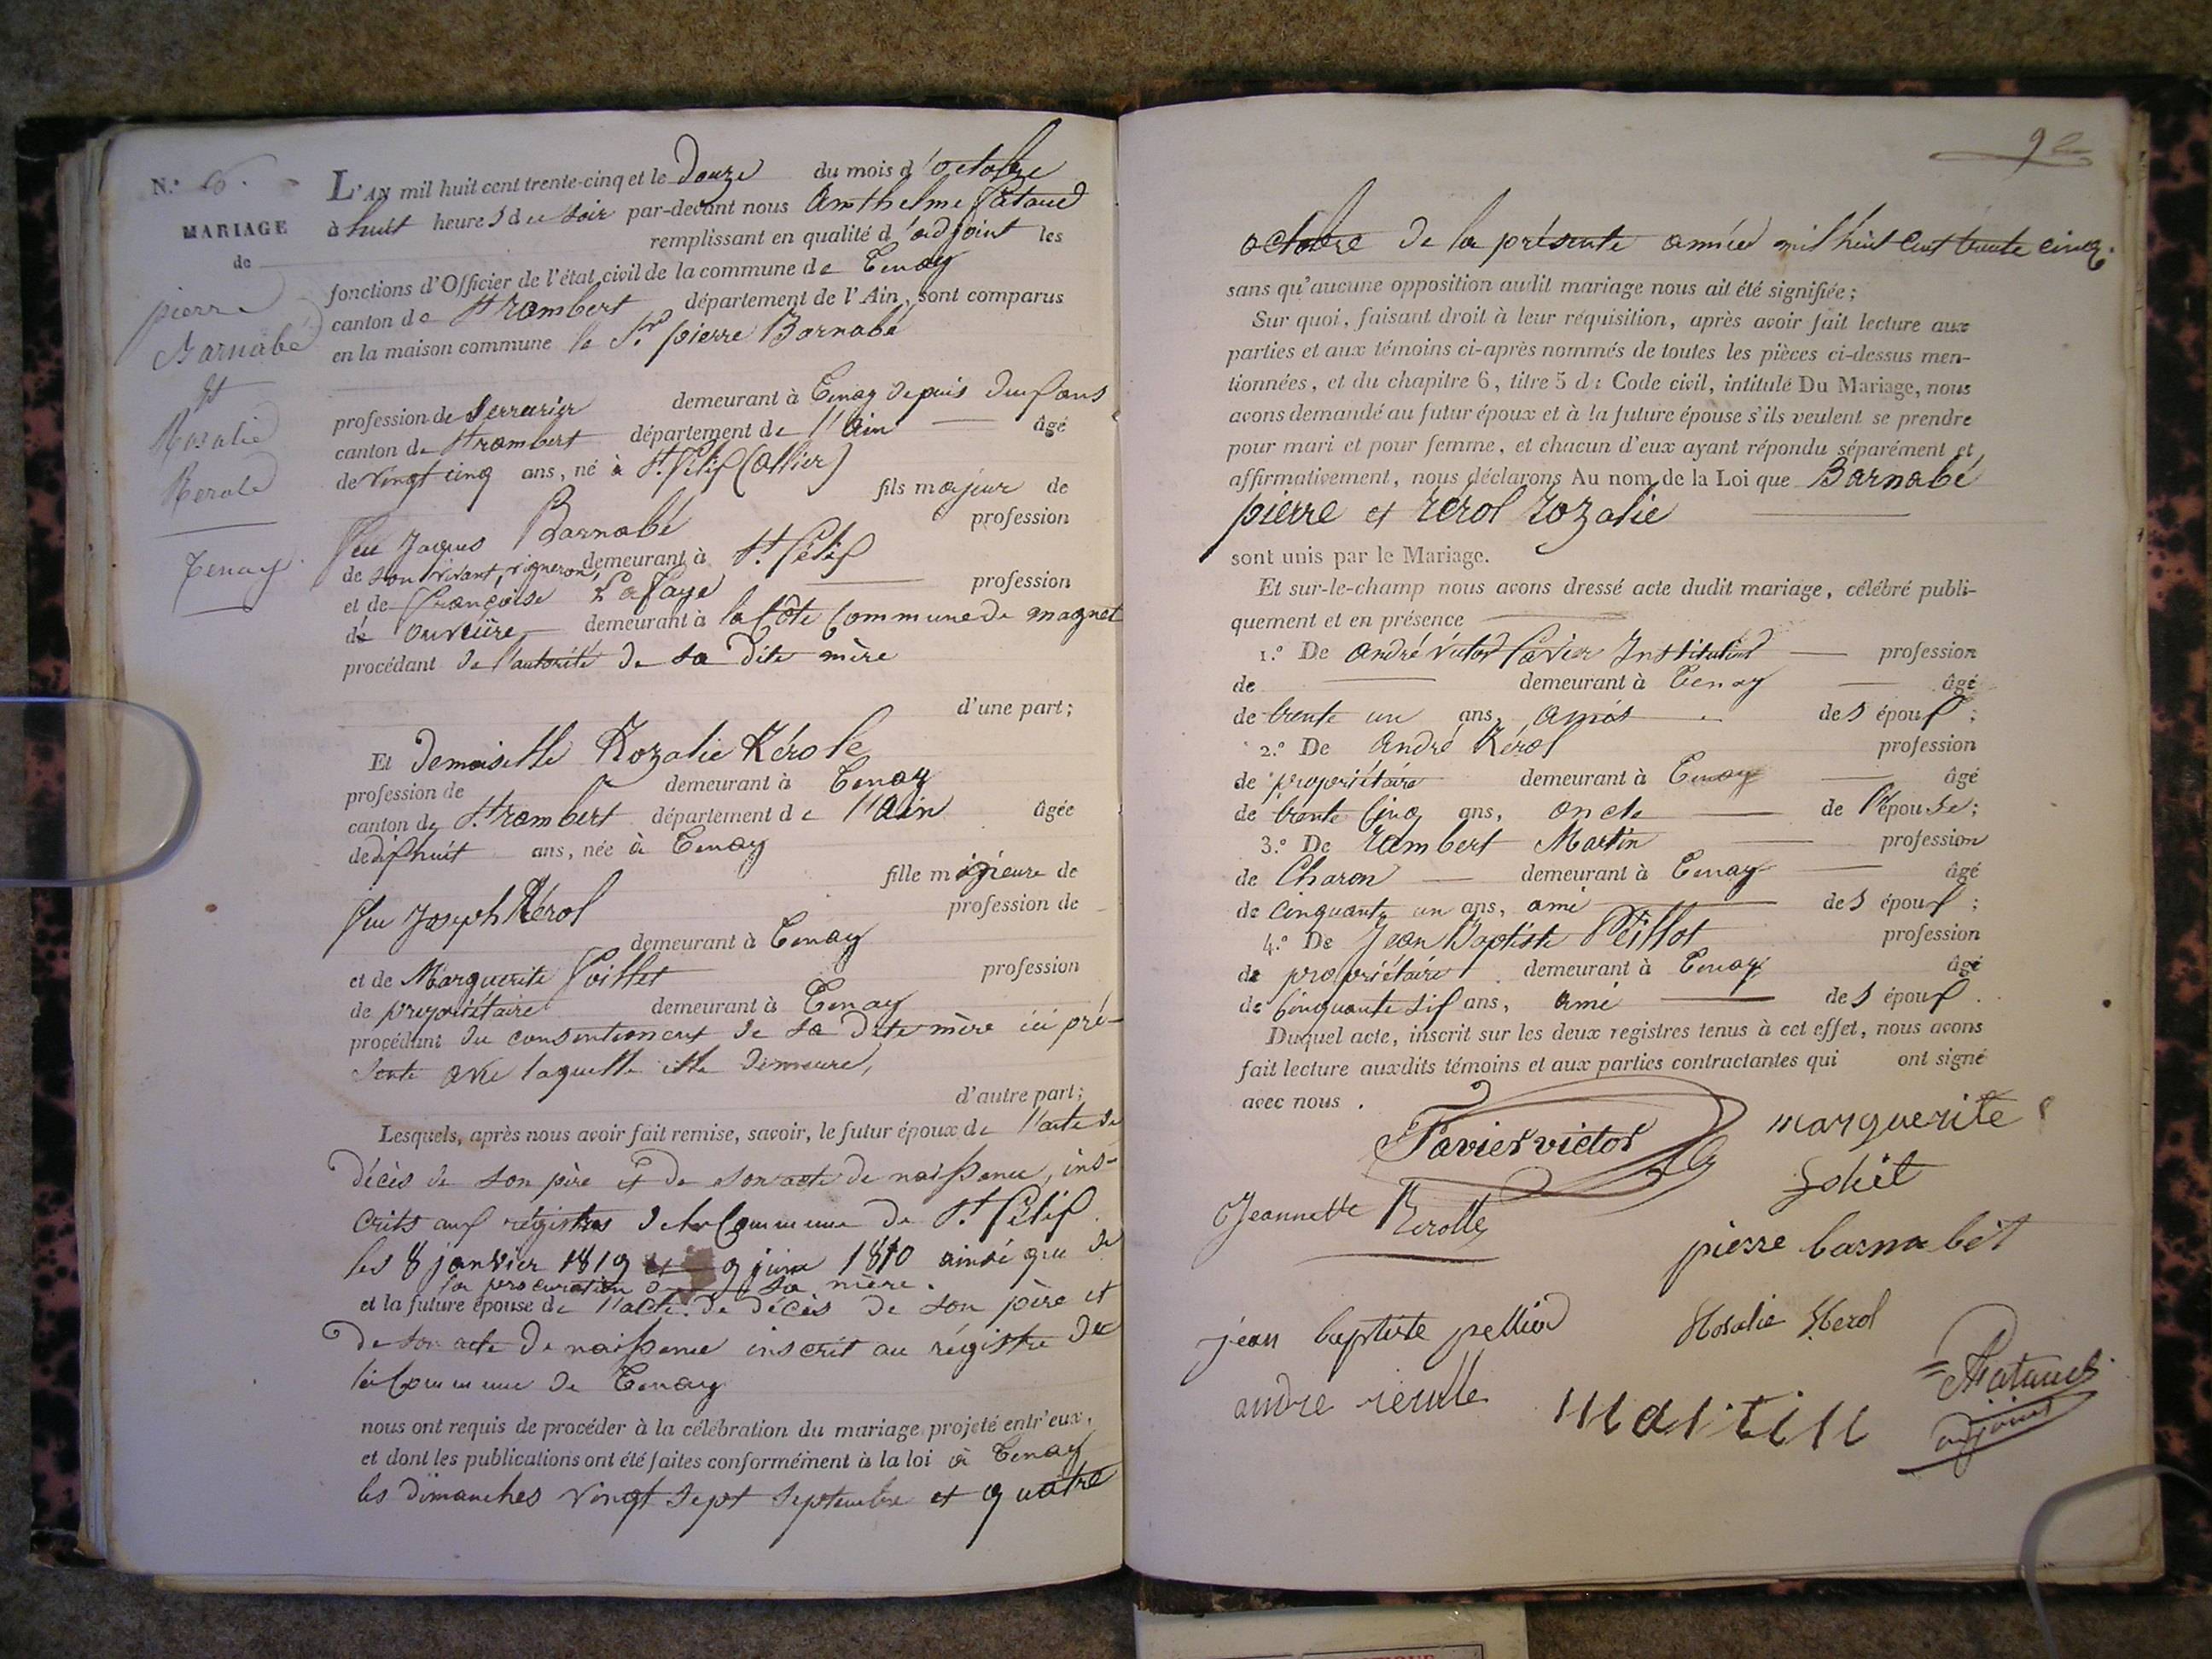 N.º 6.
MARIAGE
de
pierre
Barnabé
et
Rosalie
Kerole
Tenay
L'AN mil huit cent trente-cinq et le douze du mois d'octobre
à huit heures du soir par-devant nous Anthelme Pataud
remplissant en qualité d'adjoint les
fonctions d'Officier de l'état civil de la commune de Tenay
canton de St rambert département de l'Ain, sont comparus
en la maison commune le Sr pierre Barnabé
profession de Serrurier demeurant à Tenay depuis deux ans
canton de St rambert département de l'Ain âgé
de vingt cinq ans, né à St. Pélix (Allier)
fils majeur de
feu Jaques Barnabé profession
de son vivant, vigneron, demeurant à St. Pélix
et de Françoise Lafaye profession
de ouvrière demeurant à la Côte Commune de magnet
procédant de l'autorité de sa dite mère
d'une part;
Et demoiselle Rozalie Kérole
profession de demeurant à Tenay
canton de St. rambert département de l'Ain âgée
de dix huit ans, née à Tenay
fille migneure de
feu Joseph Kérol profession de
demeurant à Tenay
et de Marguerite profession
de propriétaire demeurant à Tenay
procédant du consentement de sa dite mère ici pré-
sente avec laquelle elle demeure,
d'autre part;
Lesquels, après nous avoir fait remise, savoir, le futur époux de l'acte de
décès de son père et de son acte de naissance, ins-
crits aux régistres de la Commune de St. Pélix
les 8 janvier 1819 et 9 juin 1810 ainsi que de
la procuration de sa mère.
et la future épouse de l'acte de décès de son père et
de son acte de naissance inscrit au régistre de
la Commune de Tenay
nous ont requis de procéder à la célébration du mariage projeté entr'eux,
et dont les publications ont été faites conformément à la loi à Tenay
les dimanches vingt sept septembre et quatre
92
octobre de la présente année mil huit cent trente cinq.
sans qu'aucune opposition audit mariage nous ait été signifiée;
Sur quoi, faisant droit à leur réquisition, après avoir fait lecture aux
parties et aux témoins ci-après nommés de toutes les pièces ci-dessus men-
tionnées, et du chapitre 6, titre 5 du Code civil, intitulé Du Mariage, nous
avons demandé au futur époux et à la future épouse s'ils veulent se prendre
pour mari et pour femme, et chacun d'eux ayant répondu séparément et
affirmativement, nous déclarons Au nom de la Loi que Barnabé
pierre et rérol rozalie
sont unis par le Mariage.
Et sur-le-champ nous avons dressé acte dudit mariage, célébré publi-
quement et en présence
1.º De André Victor Savier Instituteur profession
de demeurant à Tenay âgé
de trente un ans, amis des époux;
2.º De André Kérol profession
de propriétaire demeurant à Tenay âgé
de trente cinq ans, oncle de l'épouse;
3.º De rambert Martin profession
de Charon demeurant à Tenay âgé
de cinquante un ans, ami des époux;
4.º De Jean Baptiste Peillot profession
de propriétaire demeurant à Tenay âgé
de cinquante six ans, ami des époux.
Duquel acte, inscrit sur les deux registres tenus à cet effet, nous avons
fait lecture auxdits témoins et aux parties contractantes qui ont signé
avec nous.
Savier victor
marguerite
Jeannette Kerolle
pierre barnabét
jean baptiste pelliod
Rosalie Kerol
andre
martin
Pataud
adjoint